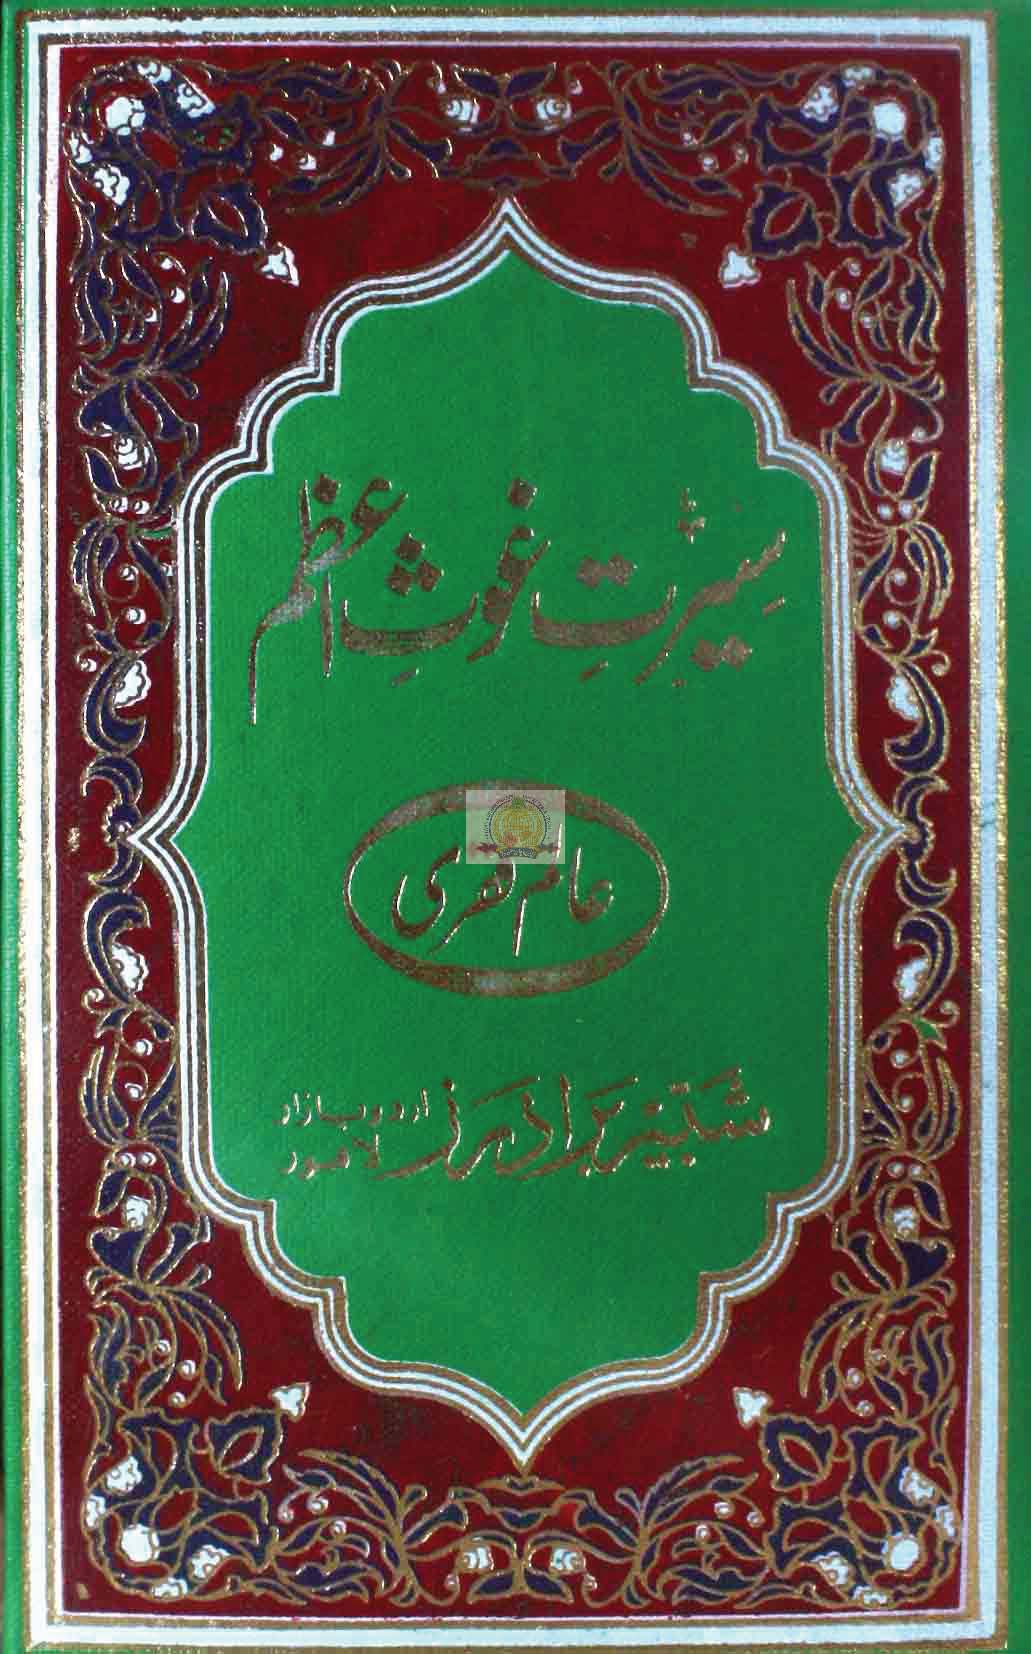 سیرتِ غوثِ اعظم
عالم فقری
شبیر برادرز اردو بازار لاہور